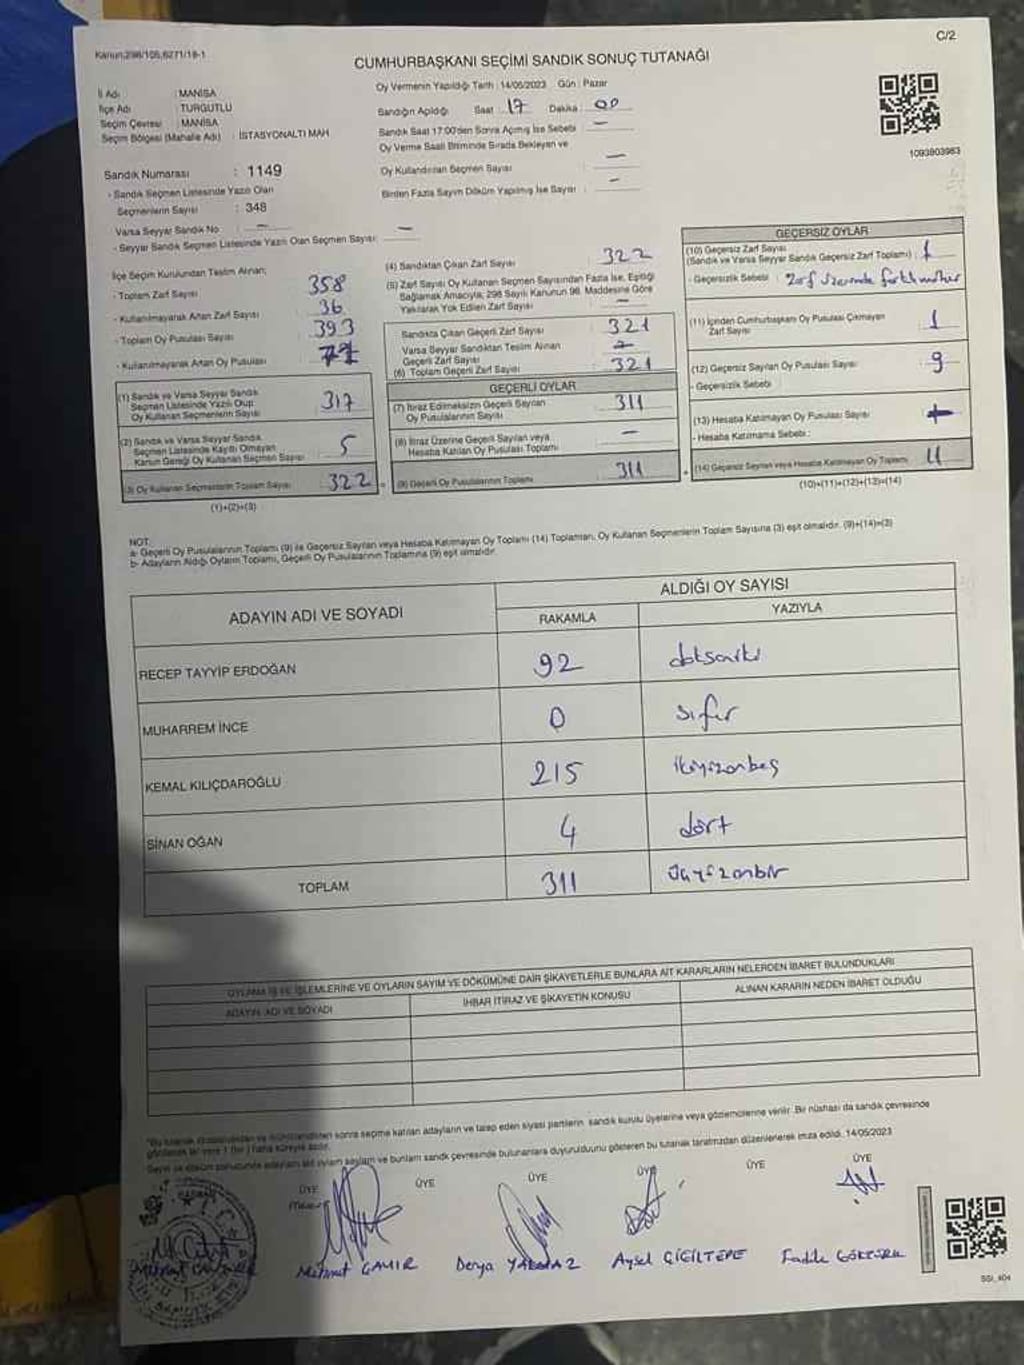 Kanun:298/105,6271/18-1
C/2
CUMHURBAŞKANI SEÇİMİ SANDIK SONUÇ TUTANAĞI
Oy Vermenin Yapıldığı Tarih : 14/05/2023 Gün : Pazar
İl Adı : MANİSA
İlçe Adı : TURGUTLU
Seçim Çevresi : MANİSA
Seçim Bölgesi (Mahalle Adı) : İSTASYONALTI MAH
Sandığın Açıldığı Saat 17 Dakika : 00
Sandık Saat 17:00'den Sonra Açılmış İse Sebebi : —
Oy Verme Saati Bitiminde Sırada Bekleyen ve
Oy Kullandırılan Seçmen Sayısı : —
Birden Fazla Sayım Döküm Yapılmış İse Sayısı : —
1093803983
Sandık Numarası : 1149
- Sandık Seçmen Listesinde Yazılı Olan
Seçmenlerin Sayısı : 348
Varsa Seyyar Sandık No : —
- Seyyar Sandık Seçmen Listesinde Yazılı Olan Seçmen Sayısı: —
İlçe Seçim Kurulundan Teslim Alınan;
- Toplam Zarf Sayısı 358
- Kullanılmayarak Artan Zarf Sayısı 36
- Toplam Oy Pusulası Sayısı 393
- Kullanılmayarak Artan Oy Pusulası
(1) Sandık ve Varsa Seyyar Sandık
Seçmen Listesinde Yazılı Olup
Oy Kullanan Seçmenlerin Sayısı 317
(2) Sandık ve Varsa Seyyar Sandık
Seçmen Listesinde Kayıtlı Olmayan
Kanun Gereği Oy Kullanan Seçmen Sayısı 5
(3) Oy Kullanan Seçmenlerin Toplam Sayısı 322
(1)+(2)=(3)
(4) Sandıktan Çıkan Zarf Sayısı 322
(5) Zarf Sayısı Oy Kullanan Seçmen Sayısından Fazla İse, Eşitliği
Sağlamak Amacıyla; 298 Sayılı Kanunun 98. Maddesine Göre
Yakılarak Yok Edilen Zarf Sayısı —
Sandıkta Çıkan Geçerli Zarf Sayısı 321
Varsa Seyyar Sandıktan Teslim Alınan
Geçerli Zarf Sayısı
(6) Toplam Geçerli Zarf Sayısı 321
GEÇERLİ OYLAR
(7) İtiraz Edilmeksizin Geçerli Sayılan
Oy Pusulalarının Sayısı 311
(8) İtiraz Üzerine Geçerli Sayılan veya
Hesaba Katılan Oy Pusulası Toplamı —
(9) Geçerli Oy Pusulalarının Toplamı 311
GEÇERSİZ OYLAR
(10) Geçersiz Zarf Sayısı
(Sandık ve Varsa Seyyar Sandık Geçersiz Zarf Toplamı) : 1
- Geçersizlik Sebebi : Zarf üzerinde
(11) İçinden Cumhurbaşkanı Oy Pusulası Çıkmayan
Zarf Sayısı 1
(12) Geçersiz Sayılan Oy Pusulası Sayısı 9
- Geçersizlik Sebebi
(13) Hesaba Katılmayan Oy Pusulası Sayısı
- Hesaba Katılmama Sebebi :
(14) Geçersiz Sayılan veya Hesaba Katılmayan Oy Toplamı 11
(10)+(11)+(12)+(13)=(14)
NOT:
a- Geçerli Oy Pusulalarının Toplamı (9) ile Geçersiz Sayılan veya Hesaba Katılmayan Oy Toplamı (14) Toplamları, Oy Kullanan Seçmenlerin Toplam Sayısına (3) eşit olmalıdır. (9)+(14)=(3)
b- Adayların Aldığı Oyların Toplamı, Geçerli Oy Pusulalarının Toplamına (9) eşit olmalıdır.
ADAYIN ADI VE SOYADI
ALDIĞI OY SAYISI
RAKAMLA
YAZIYLA
RECEP TAYYİP ERDOĞAN 92 doksaniki
MUHARREM İNCE 0 sıfır
KEMAL KILIÇDAROĞLU 215 ikiyüzonbeş
SİNAN OĞAN 4 dört
TOPLAM 311 üçyüzonbir
OYLAMA İŞ VE İŞLEMLERİNE VE OYLARIN SAYIM VE DÖKÜMÜNE DAİR ŞİKAYETLERLE BUNLARA AİT KARARLARIN NELERDEN İBARET BULUNDUKLARI
ADAYIN ADI VE SOYADI
İHBAR İTİRAZ VE ŞİKAYETİN KONUSU
ALINAN KARARIN NEDEN İBARET OLDUĞU
sonra seçime katılan adayların ve talep eden siyasi partilerin sandık kurulu üyelerine veya gözlemcilerine verilir. Bir nüshası da sandık çevresinde
ve bunların sandık çevresinde bulunanlara duyurulduğunu gösteren bu tutanak tarafımızdan düzenlenerek imza edildi. 14/05/2023
ÜYE
ÜYE
ÜYE
ÜYE
ÜYE
ÜYE
Mehmet ÇAMIR
Derya YILMAZ
Aysel ÇİĞİLTEPE
Fadile GÖKTÜRK